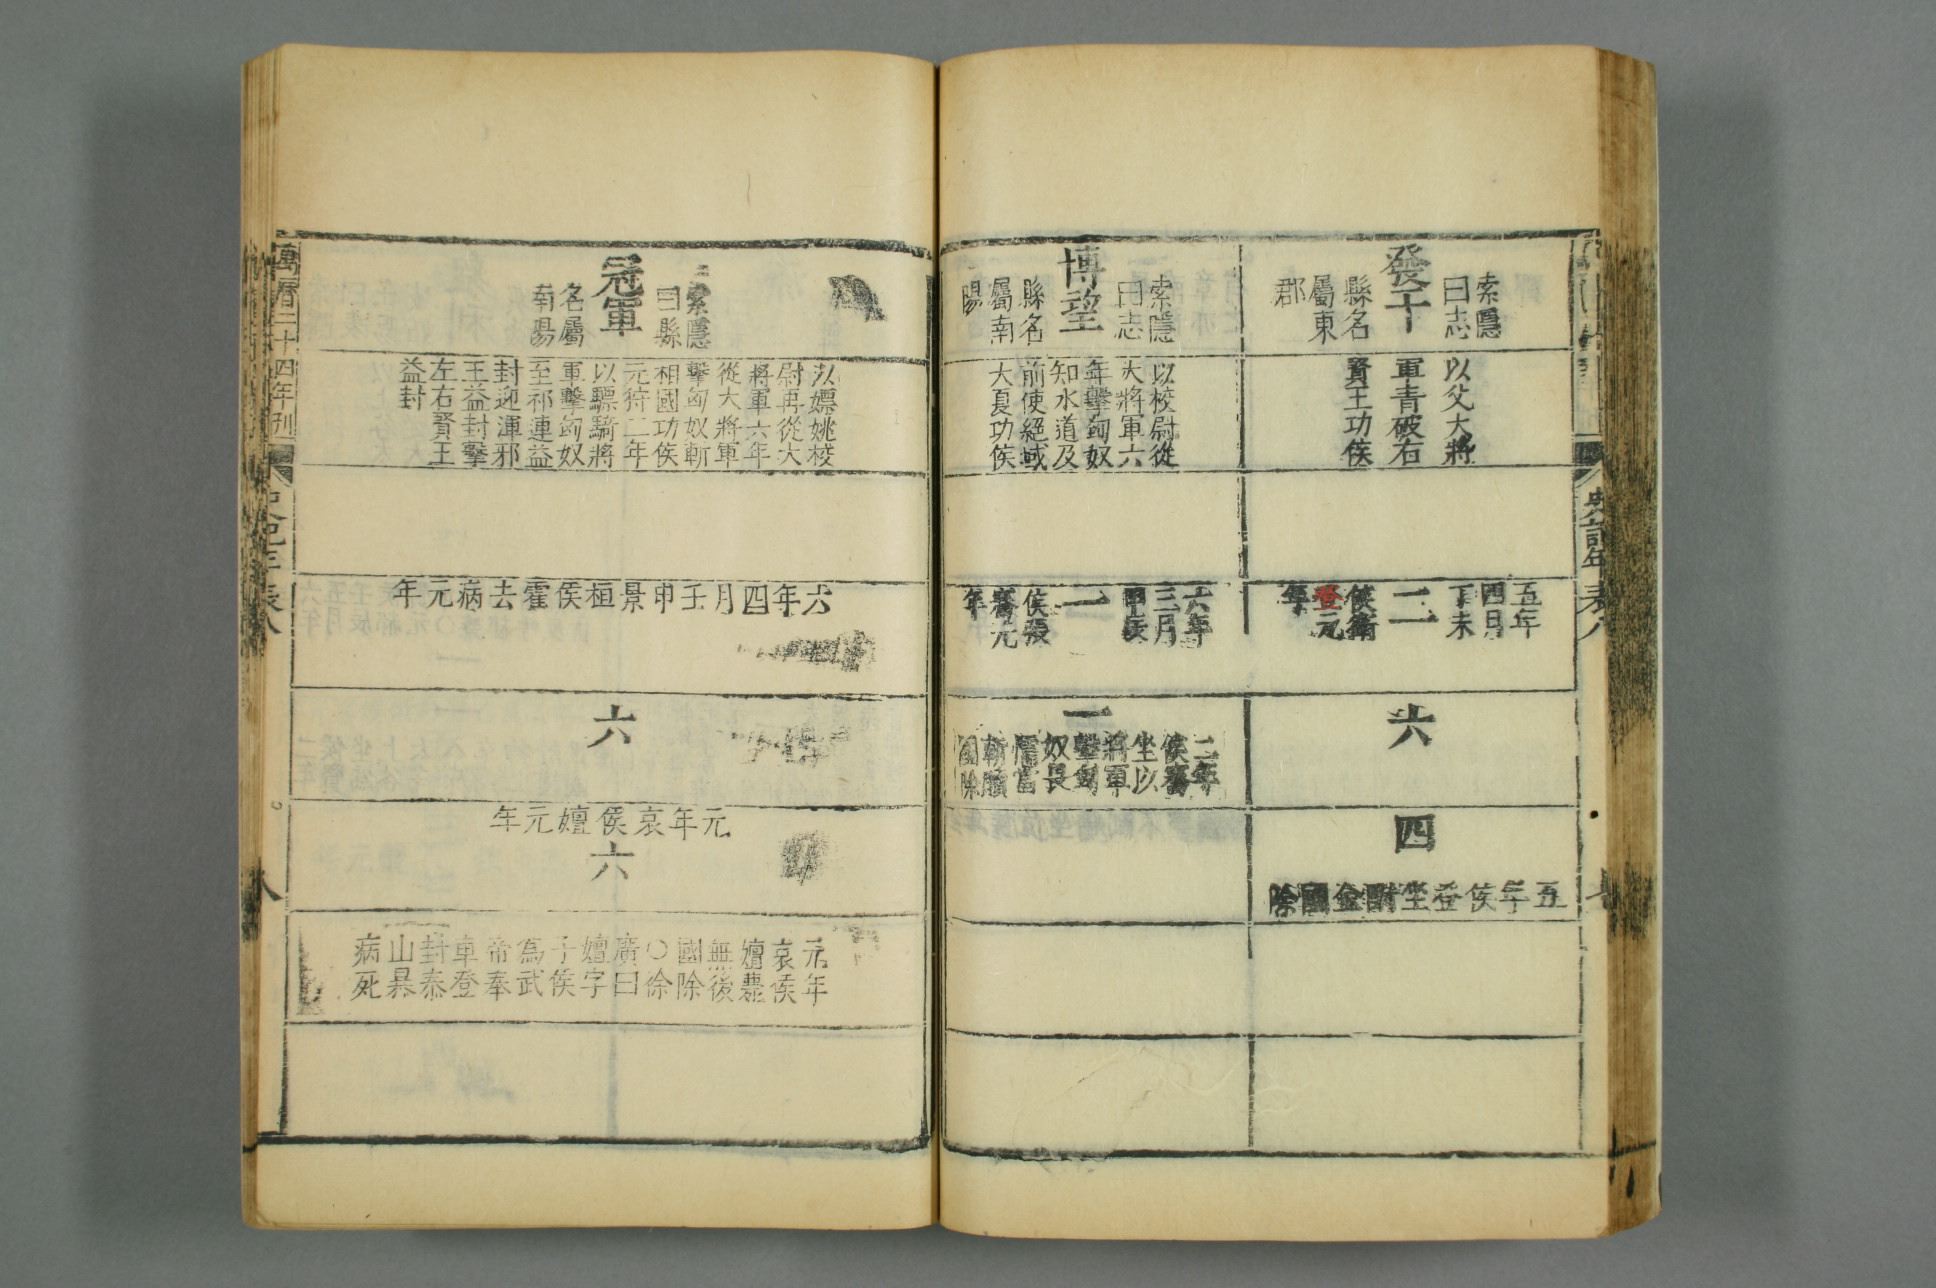 發干
索隱
曰志
縣名
屬東
郡
以父大將
軍青破右
賢王功侯
五年
四月
丁未
二
侯衞
登元
年
六
四
五年侯登坐酎金國除
博望
索隱
曰志
縣名
屬南
陽
以校尉從
大將軍六
年擊匈奴
知水道及
前使絕域
大夏功侯
六年
三月
甲辰
一
侯張
騫元
年
一
二年
侯騫
坐以
將軍
擊匈
奴畏
懦當
斬贖
國除
史記年表八
冠軍
索隱
曰縣
名屬
南陽
以嫖姚校
尉再從大
將軍六年
從大將軍
擊匈奴斬
相國功侯
元狩二年
以驃騎將
軍擊匈奴
至祁連益
封迎渾邪
王益封擊
左右賢王
益封
六年四月壬申景桓侯霍去病元年
六
元年哀侯嬗元年
六
元年
哀侯
嬗薨
無後
國除
○徐
廣曰
嬗字
子侯
為武
帝奉
車登
封泰
山暴
病死
萬曆二十四年刋
史記年表八